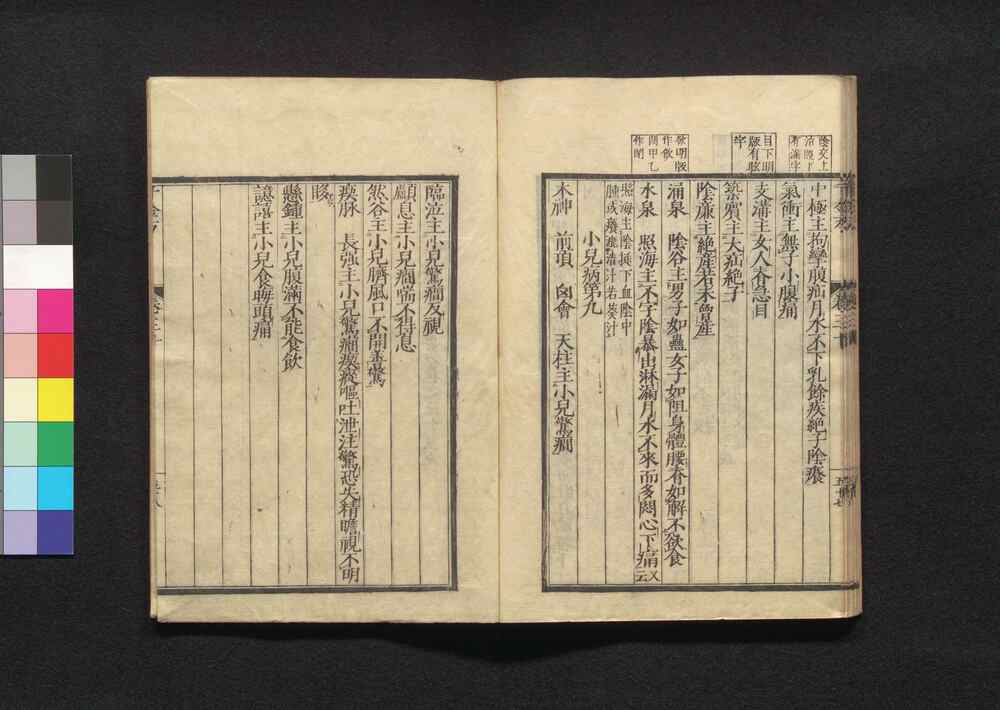 中極主拘攣腹疝月水不下乳餘疾絶子陰癢
氣衝主無子小腹痛
支溝主女人脊急目
築賓主大疝絶子
陰廉主絶産若未曾産
涌泉　陰谷主男子如蠱女子如阻身體腰脊如解不欲食
水泉　照海主不字陰暴出淋漏月水不來而多悶心下痛又云
照海主陰挺下血陰中
腫或癢漉清汁若葵汁
小兒病第九
本神　前項　囟會　天柱主小兒驚癇
臨泣主小兒驚癇反視
顱息主小兒癇喘不得息
然谷主小兒臍風口不開善驚
瘈脉　長強主小兒驚癇瘈瘲嘔吐泄注驚恐失精瞻視不明
眵
懸鐘主小兒腹滿不能食飲
譩譆主小兒食晦頭痛
目下明
版有䀮
字